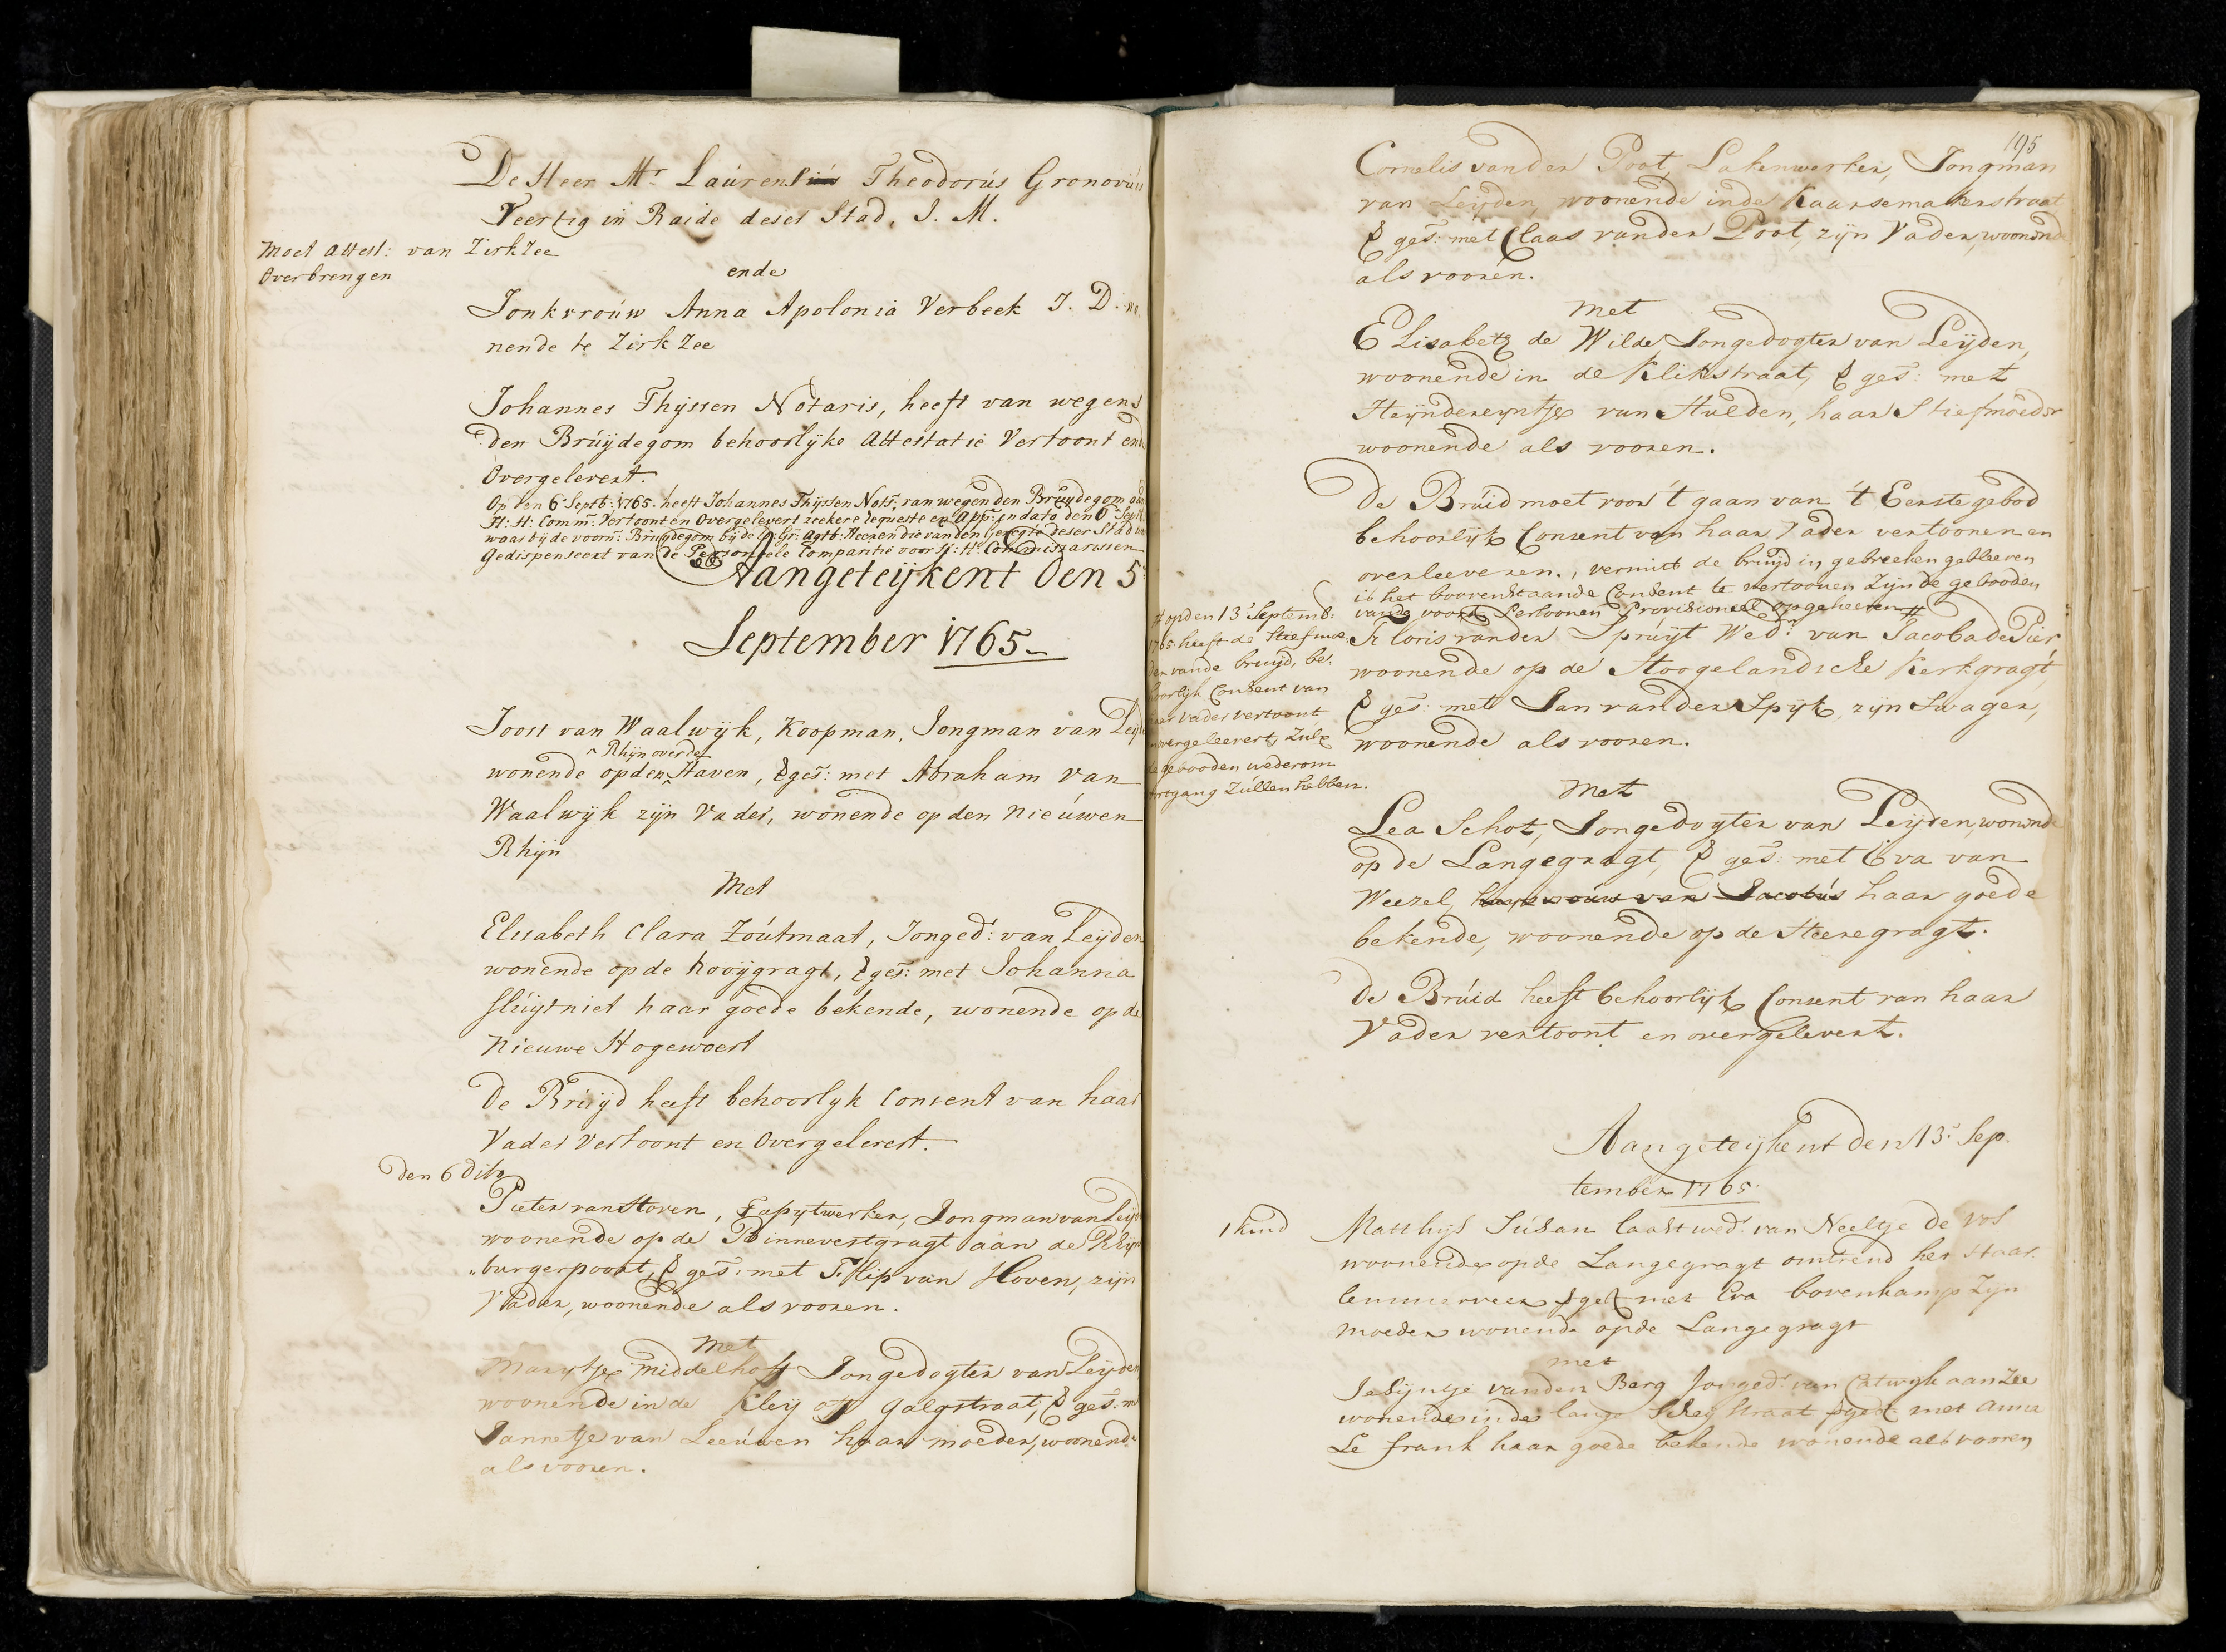 De Heer Mr. Laurens Theodorus Gronovius
Veertig in Raide deser Stad, J. M.
Moet attest: van Zirkzee
Overbrengen
ende
Jonkvrouw Anna Apolonia Verbeek J. D. wo
nende te Zirk Zee
Johannes Thijssen Notaris, heeft van wegens
den Bruijdegom behoorlijke attestatie Vertoont ende
Overgelevert.
Op den 6 Septb: 1765. heeft Johannes Thijssen Nots, van wegen den Bruijdegom aan
H: H: Comm: Vertoont en Overgelevert zeekere requeste en App: in dato den 6 Septb
waar bij de voorn: Bruijdegom bij de Ed: Gr: Agtb: Heeren die van den Geregte deser Stad
Gedispenseert van de Personeele Comparitie voor H: H: Commissarissen
Aangeteijkent den 5
September 1765
Joost van Waalwijk, Koopman, Jongman van Leyd
^ Rhijn over de
wonende op den ^ Haven, & ges: met Abraham van
Waalwijk zijn Vader, wonende op den Nieuwen
Rhijn
Met
Elisabeth Clara Zoutmaat, Jonged: van Leijden
wonende op de hooijgragt, & ges: met Johanna
Sluijtniet haar goede bekende, wonende op de
Nieuwe Hogewoert
De Bruijd heeft behoorlyk Consent van haar
Vader Vertoont en Overgelevert.
den 6 dito
Pieter van Hoven, Tapytwerker, Jongman van Leyd
woonende op de Binnevestgragt aan de Rhijns
„burgerpoort, & ges: met Flip van Hoven, zijn
Vader, woonende als vooren.
Met
Marytje Middelhoff Jongedogter van Leyden
woonende in de Kleij off galgstraat, & ges: m
Jannetje van Leeuwen haar moeder, woonende
als vooren.
195
Cornelis vander Poot, Lakenwerker, Jongman
van Leyden, woonende inde Kaarsemakerstraat
& ges: met Claas vander Poot, zijn Vader, woonende
als vooren.
Met
Elisabeth de Wilde Jongedogter van Leijden,
woonende in de Klikstraat, & ges: met
Heijndereyntje van Hulden, haar Stiefmoeder
woonende als vooren.
De Bruid moet voor 't gaan van 't Eerste gebod
behoorlijk Consent van haar Vader vertoonen en
overleeveren., vermits de bruijd in gebreeken gebleeven
is het boovenstaande Consent te vertoonen Zijn de gebooden
vande voorn Persoonen Provisioneel opgeheeven #
# op den 13 Septemb:
1765 heeft de Stiefmoe
der vande bruijd, be
hoorlyk Consent van
haar Vader vertoont
en overgeleevert, zulx
de gebooden wederom
voortgang Zullen hebben.
Floris vander Spruijt Wedr. van Jacoba de Pier
woonende op de Hoogelandsche Kerkgragt,
& ges: met Jan vander Spijk, zijn Swager,
woonende als vooren.
Met
Lea Schot, Jongedogter van Leijden, wonende
op de Langegragt, & ges: met Eva van
Weezel, haar goede
bekende, woonende op de Heeregragt.
De Bruid heeft behoorlijk Consent van haar
Vader vertoont en overgelevert.
Aangeteijkent den 13 Sep.
tember 1765
1 kind
Matthijs Susan laast wedr. van Neeltje de Vos
woonende op de Langegragt omtrend het Haar
lemmerveer & ges met Eva bovenkamp Zijn
moeder wonende opde Langegragt
met
Jesijntje vanden Berg Jonged: van Catwyk aan Zee
wonende inde lange Scheystraat & ges: met Anna
Le frank haar goede bekende wonende als vooren